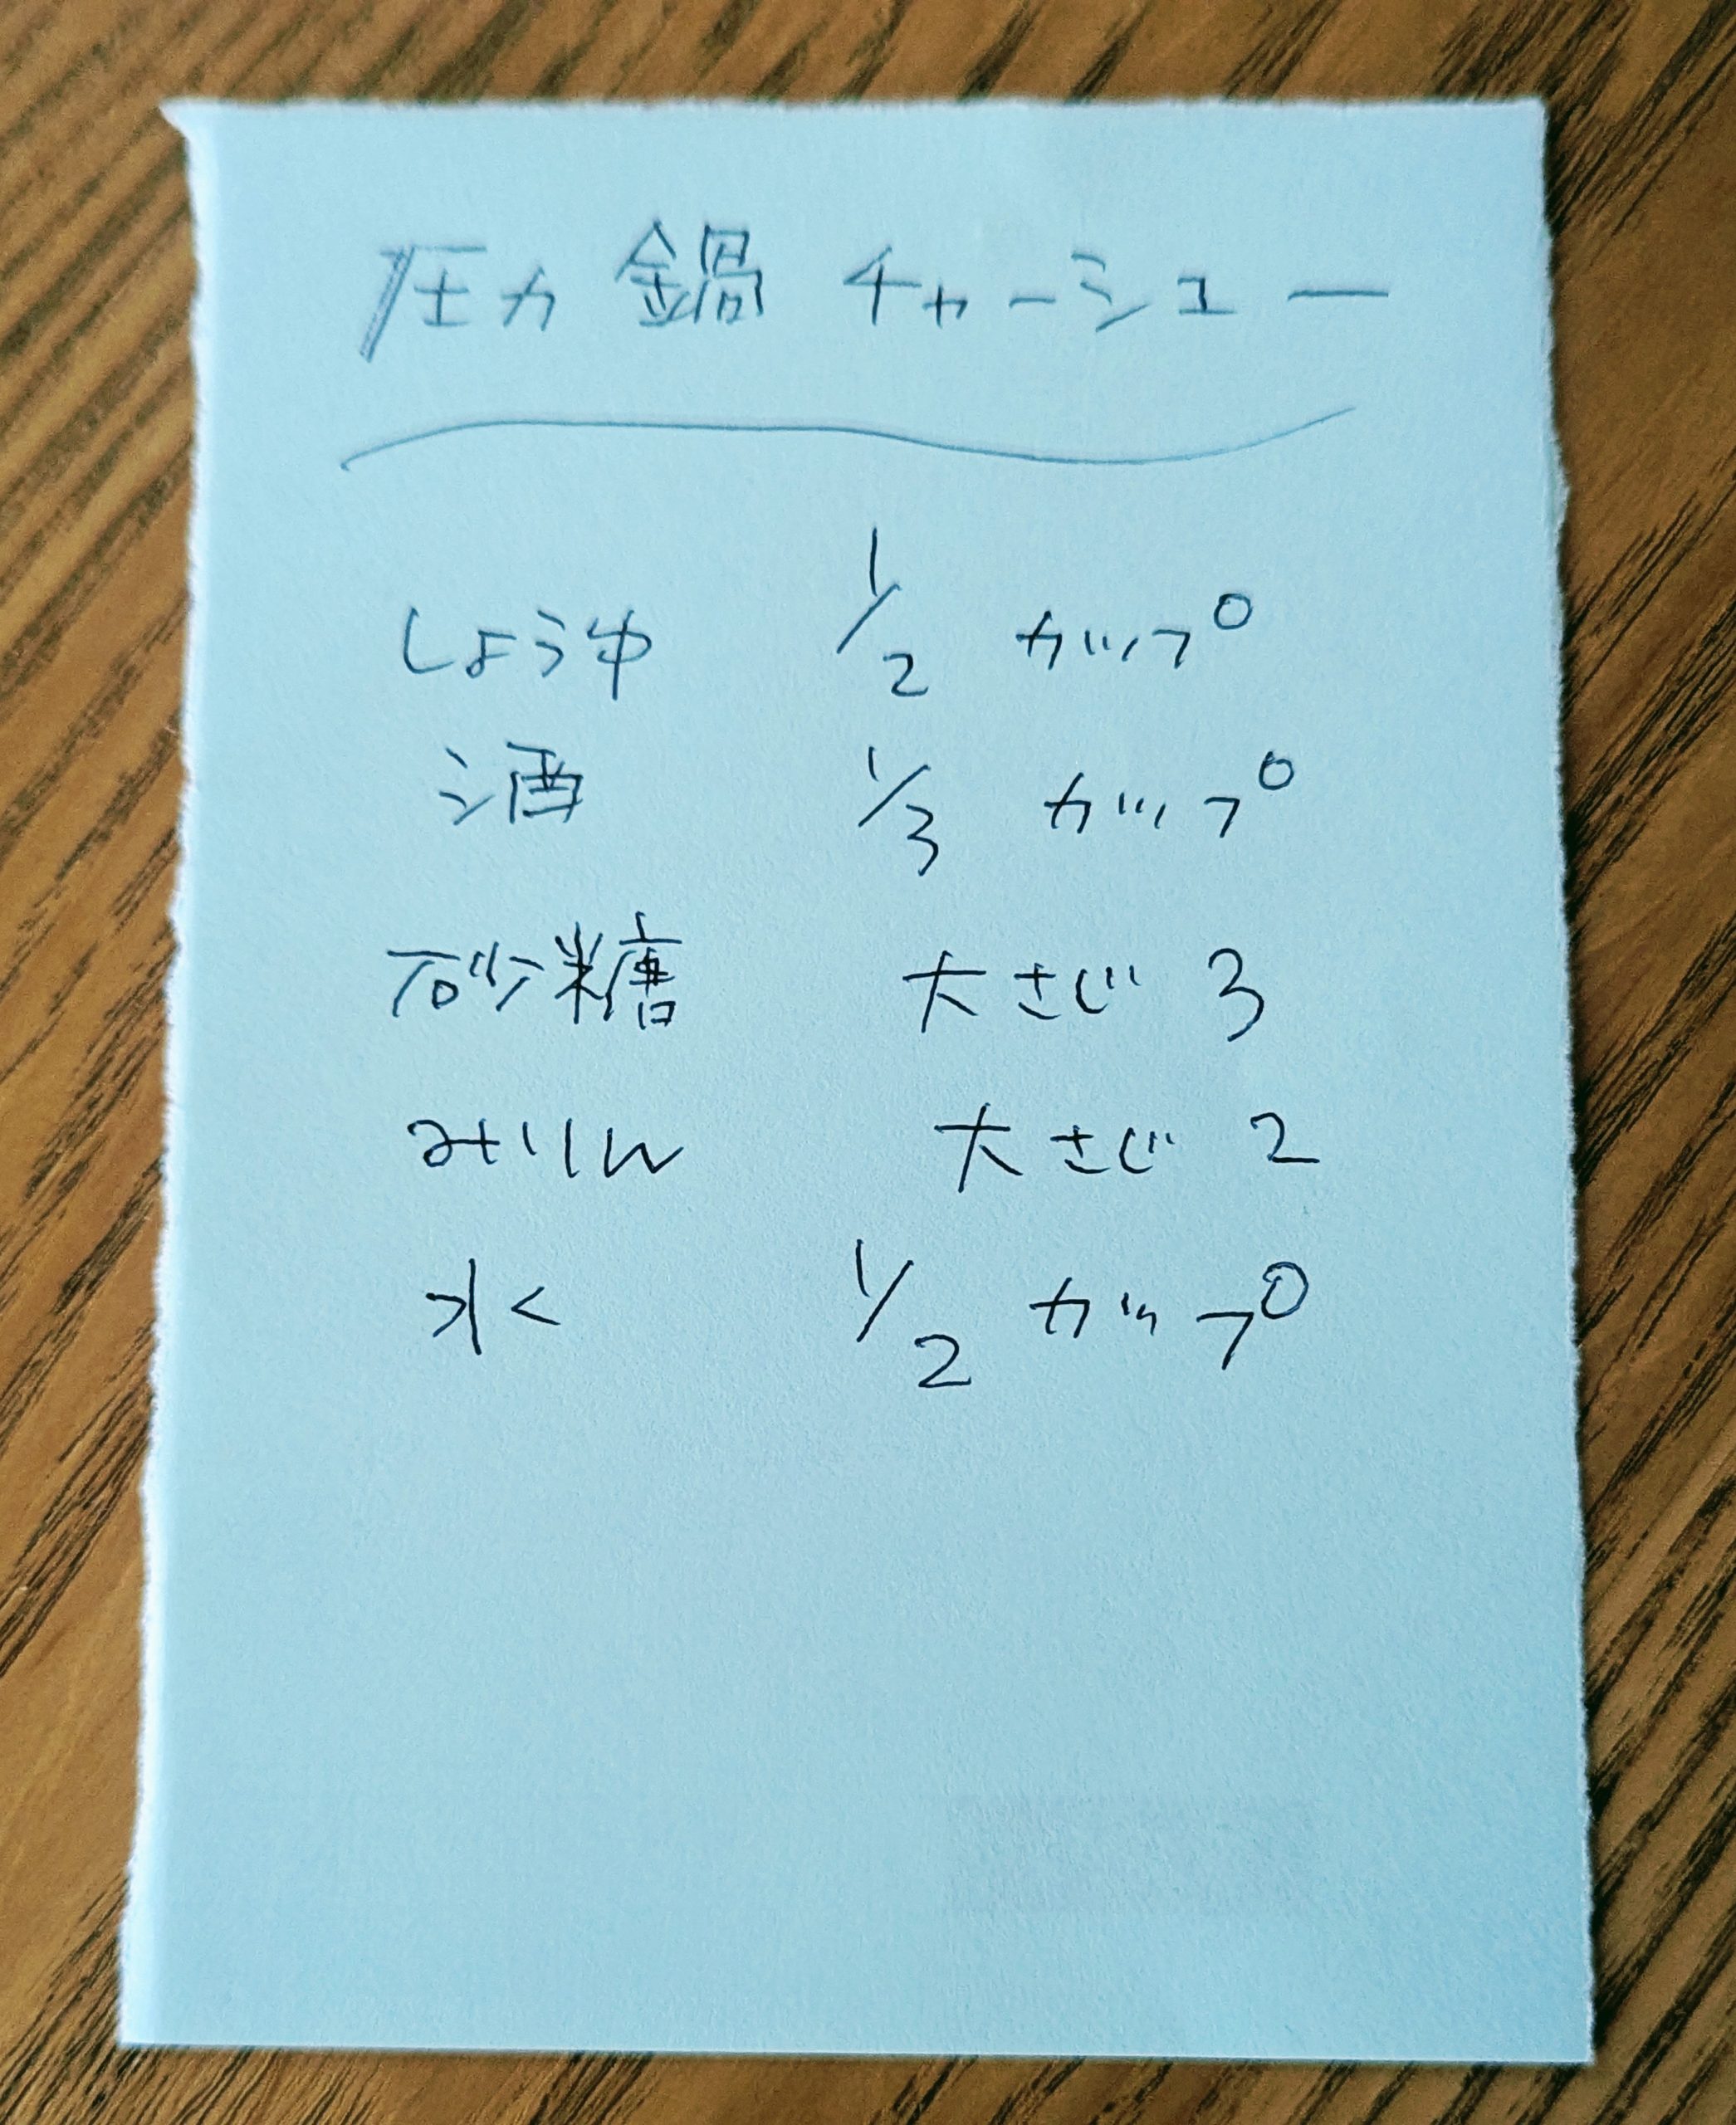 圧力鍋チャーシュー
しょうゆ 1/2 カップ
酒 1/3 カップ
砂糖 大さじ 3
みりん 大さじ 2
水 1/2 カップ